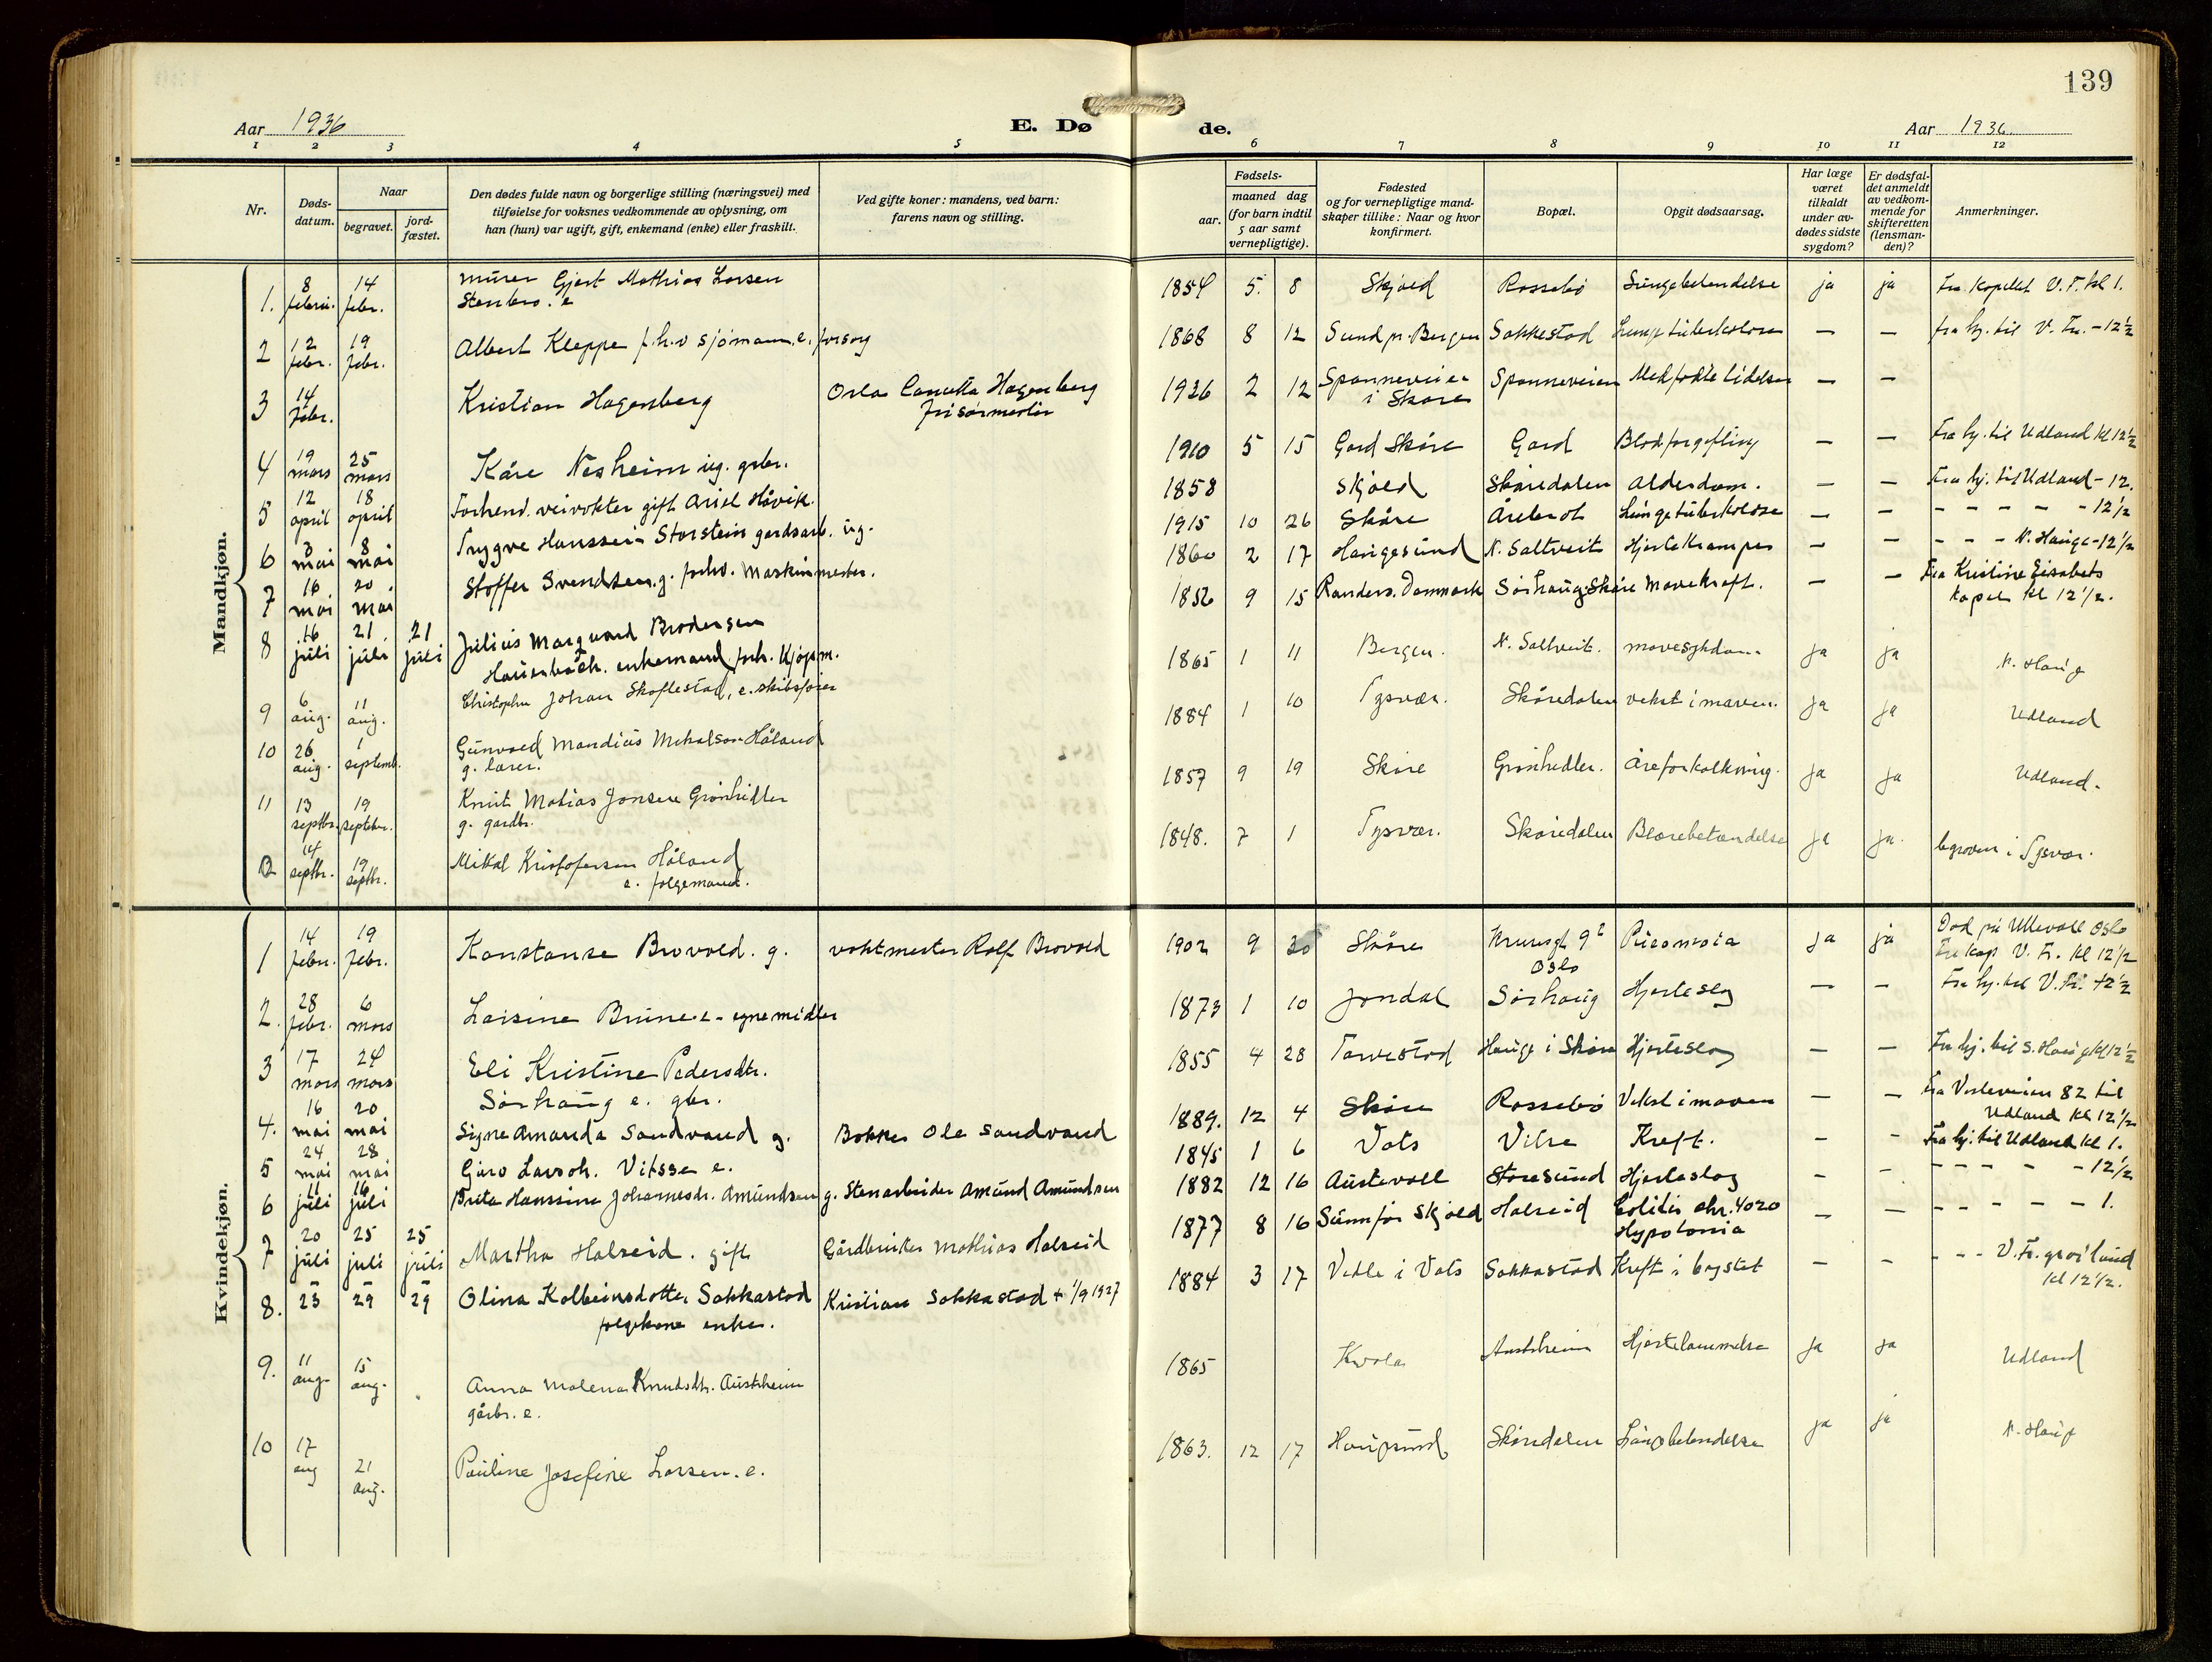 139
Aar 1936
E. Dø de.
Aar 1936.
1 2 3 4 5 6 7 8 9 10 11 12
Nr.
Døds-
datum.
Naar
begravet.
jord-
fæstet.
Den dødes fulde navn og borgerlige stilling (næringsvei) med
tilføielse for voksnes vedkommende av oplysning, om
han (hun) var ugift, gift, enkemand (enke) eller fraskilt.
Ved gifte koner: mandens, ved barn:
farens navn og stilling.
Fødsels-
aar.
maaned dag
(for barn indtil
5 aar samt
vernepligtige).
Fødested
og for vernepligtige mand-
skaper tillike: Naar og hvor
konfirmert.
Bopæl.
Opgit dødsaarsag.
Har læge
været
tilkaldt
under av-
dødes sidste
sygdom?
Er dødsfal-
det anmeldt
av vedkom-
mende for
skifteretten
(lensman-
den)?
Anmerkninger.
Mandkjøn.
1. 8 februar. 14 febr. murer Gjert Mathias Larsen 1854 5. 8 Skjold Rossebø Lungebetendelse ja ja Fra kapellet V. F. kl 1.
Stenbro. e
2 12 febr. 19 febr. Albert Kleppe f.h.v sjømann. e. forsorg 1868 8 12 Sund pr. Bergen Sakkestad Lungetuberkolose — — fra hj. til V. Fr. - 12½
3 14 febr. Kristian Hagenberg Orla Canutta Hagenberg 1936 2 12 Spanneveien Spanneveien Medfødte lidelser — —
frisørmester i Skåre
4 19 mars 25 mars Kåre Nesheim ug. grbr. 1910 5 15 Gard Skåre Gard Blodforgiftning — — Fra hj. til Udland kl 12½
5 12 april 18 april Forhend. veivokter gift Ariel Håvik. 1858 Skjold Skåredalen Alderdom. — — Fra hj. til Udland - 12.
6 3 mai 8 mai Trygve Hanssen Storstein gardsarb. ug. 1915 10 26 Skåre Årebrot Lungetuberkolose — — - - - - - 12½
7 16 mai 20 mai Stoffer Svendsen. g. forhv. Maskinmester. 1860 2 17 Haugesund N. Saltveit Hjertekramper — — - - - N. Hauge - 12½
8 16 juli 21 juli 21 juli Julius Marquard Brodersen 1852 9 15 Randers. Danmark Sørhaug Skåre Mavekreft. — — Fra Kristine Elisabets
Hausenbach. enkemand, forh. Kjøpm. kapel kl 12½.
9 6 aug. 11 aug. Christopher Johan Skoflestad, e. skibsfører 1865 1 11 Bergen. N. Saltveit. mavesykdom ja ja N. Haug
10 26 aug. 1 septemb. Gunvald Mandius Mikalsen Håland 1884 1 10 Tysvær. Skåredalen vekst i maven. ja ja Udland
g. lærer.
11 13 septbr. 19 septebr. Knut Matias Jonsen Grønhidler 1857 9 19 Skåre Grønhidler. Åreforkalkning. ja ja Udland.
g. gardbr.
12 14 septbr. 19 septbr. Mikal Kristofersen Håland 1848. 7 1 Tysvær. Skåredalen Blærebetændelse ja ja. begraven i Tysvær.
e. følgemand.
Kvindekjøn.
1 14 febr. 19 febr. Konstanse Brovold. g. vaktmester Rolf Brovold 1902 9 20 Skåre 9² ja ja Død på Ullevål Oslo
Oslo Fra kap V. Fr. kl 12½
2. 28 febr. 6 mars Lovisine Brune. e - egne midler 1873 1 10 Jondal Sørhaug Hjerteslag — — Fra hj. til V. Fr. 12½
3 17 mars 24 mars Eli Kristine Pedersdtr. 1855 4 28 Torvestad Hauge i Skåre Hjerteslag — — Fra hj. til S. Haug kl 12½
Sørhaug e. gbr.
4. 16 mai 20 mai Signe Amanda Sandvand g. Bøkker Ole Sandvand 1889. 12 4 Skåre Rossebø Vekst i maven — — Fra Vesleveien 82 til
Udland kl 12½
5 24 mai 28 mai Guro Larsdtr. Vitsse e. 1845 1 6 Vats Vitse Kreft. — - Fra hj. til Udland kl 1.
6 11 juli 16 juli Brita Hanssine Johannesdr. Amundsen g. Stenarbeider Amund Amundsen 1882 12 16 Austevoll Storesund Hjerteslag - - - - - - - 12½
7 20 juli 25 juli 25 juli Martha Halseid. gift Gårdbruker Mathias Halseid 1877 8 16 Sunnfør Skjold Halseid Colitis chr. — — - - - - - 1.
Hypotonia
8. 23 29 29 Olina Kolbeinsdotter Sakkastad Kristian Sakkastad + 1/9 1927 1884 3 17 Vedle i Vats Sakkastad Kreft i brystet — - - - - V. Fr. gravlund
følgekone enke. kl 12½.
9. 11 aug. 15 aug. Anna Malena Knudsdtr. Austrheim 1865 Kvala Austrheim Hjertelammelse ja ja Udland
gårbr. e.
10 17 aug 21 aug. Pauline Josefine Larsen. e. 1863. 12 17 Haugesund Skåredalen Lungebetendelse ja ja N. Haug